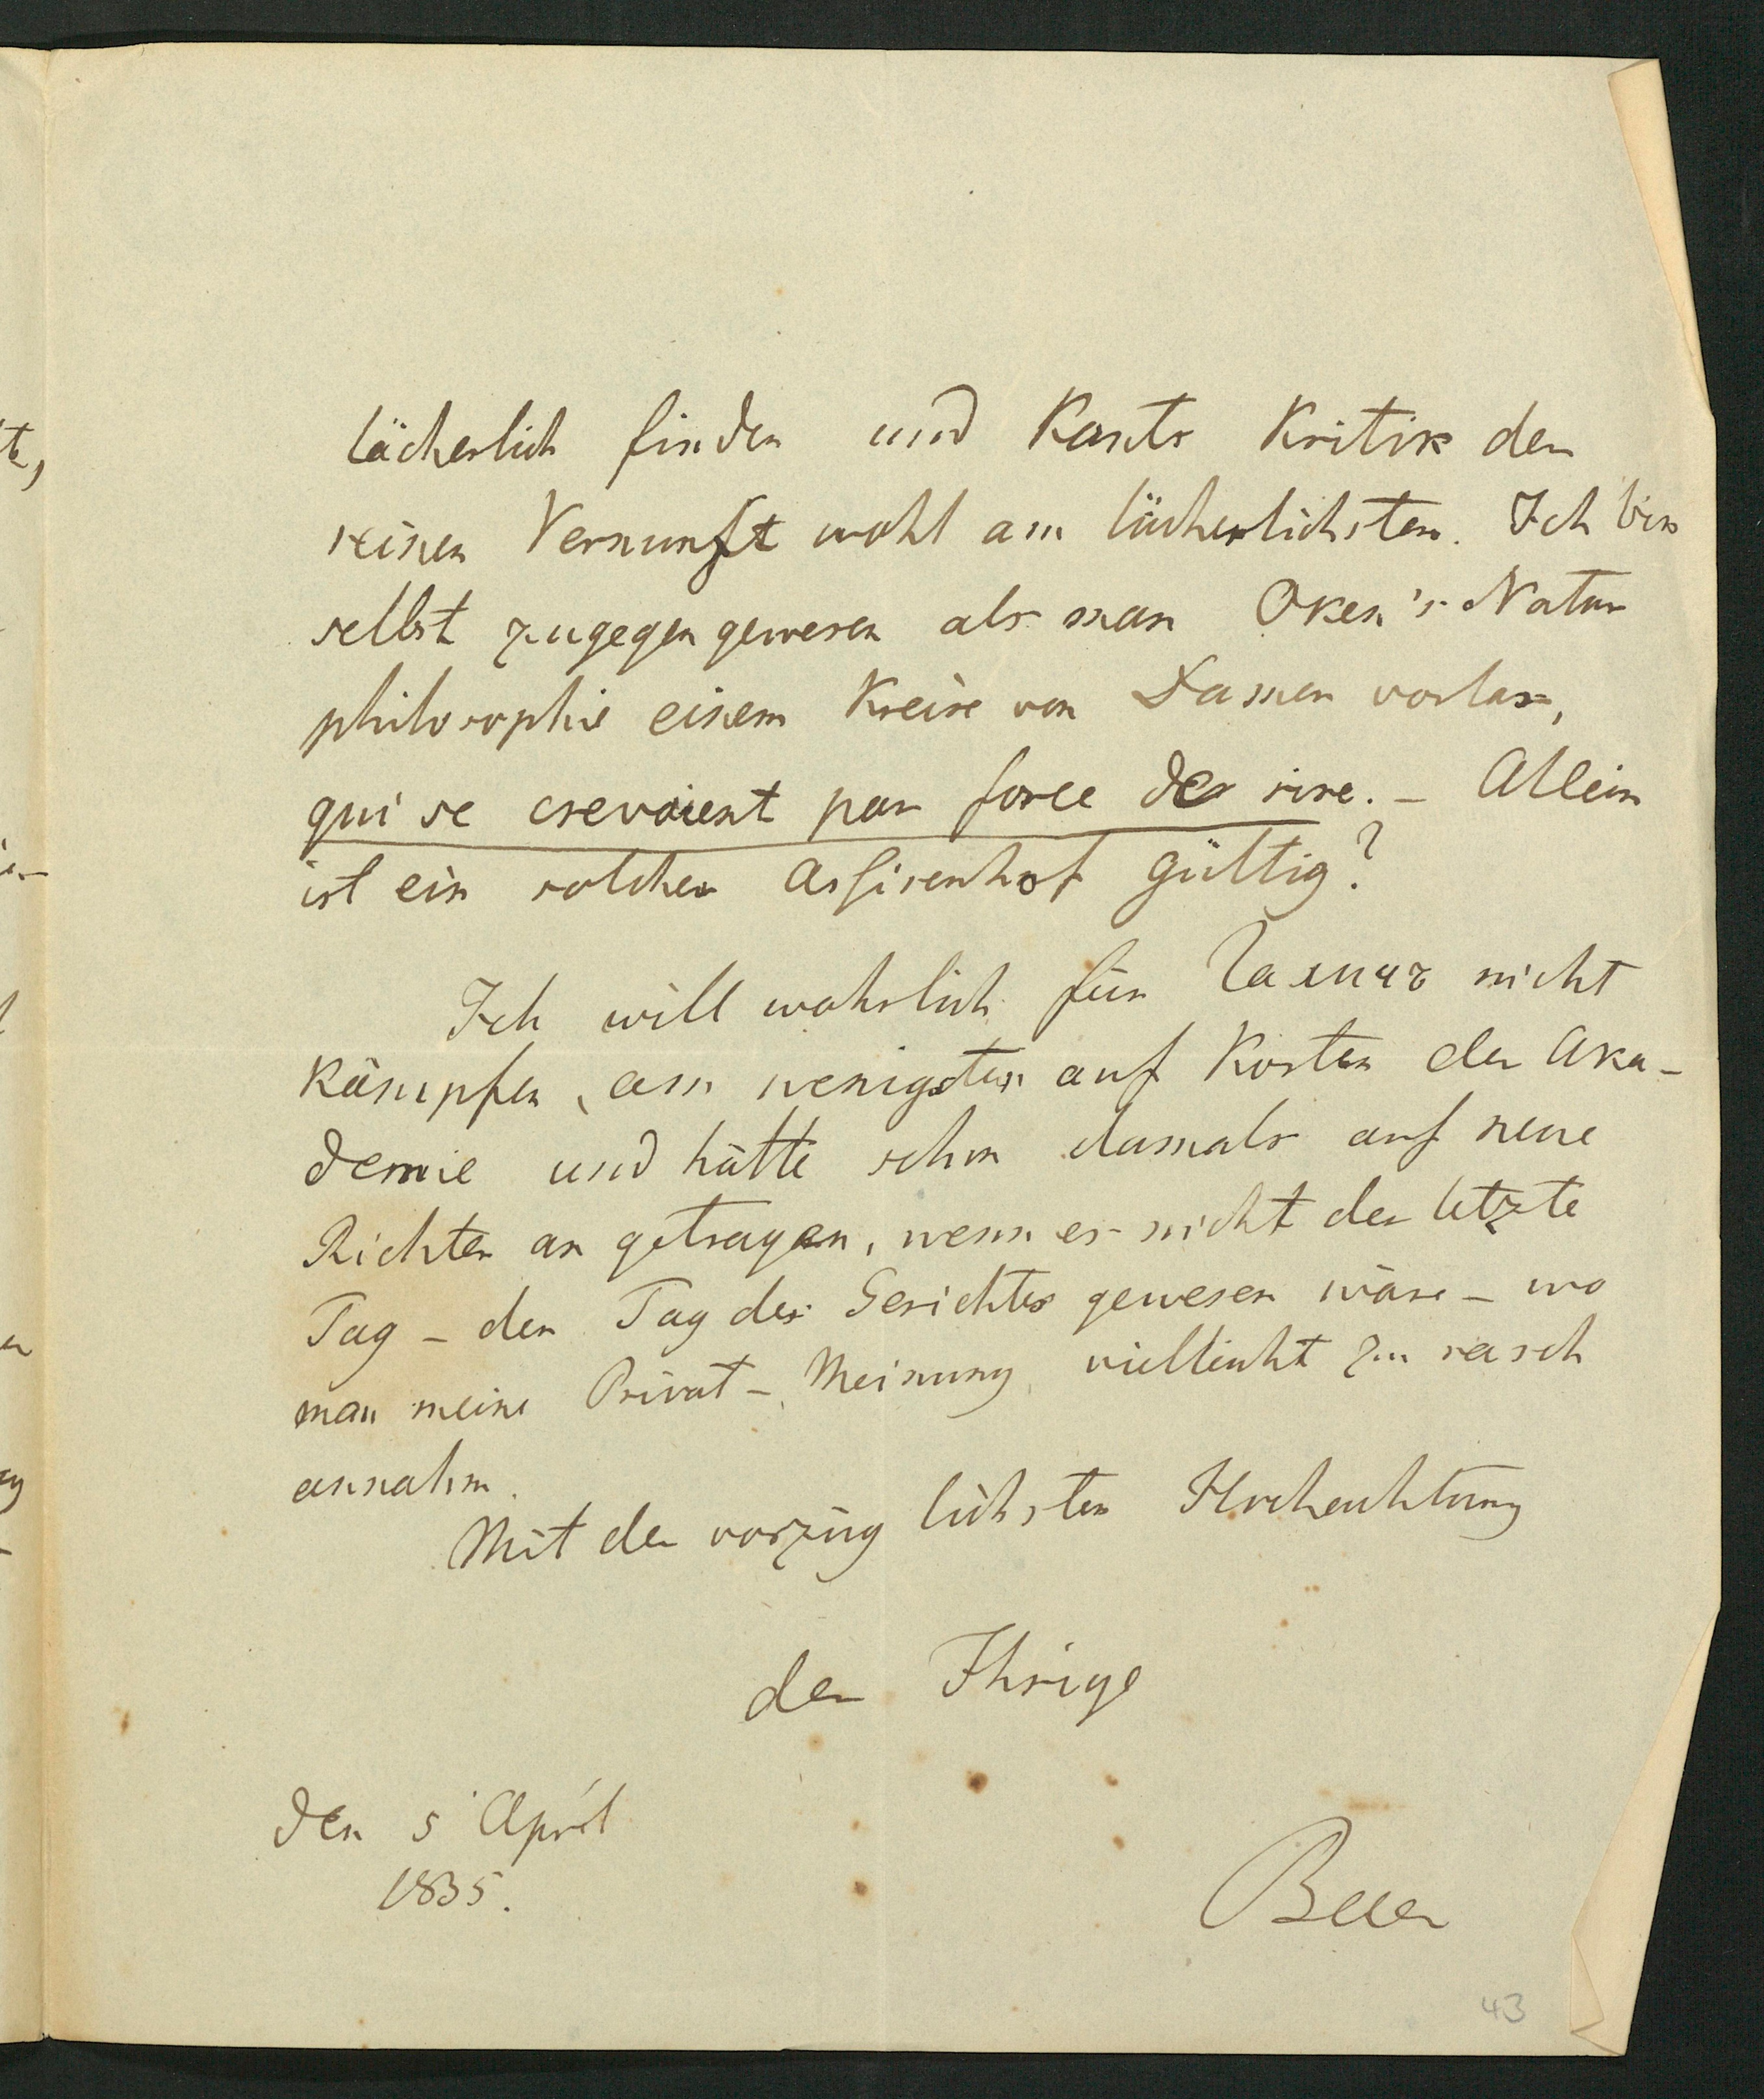 te,
lächerlich finden und Kants Kritik der
reinen Vernunft wohl am lächerlichsten. Ich bin
selbst zugegen gewesen als man Oken's Natur
philosophie einem Kreise von Damen vorlas,
qui se crevaient par force de rire. – Allein
ist ein solcher Assisenhof gültig?
Ich will wahrlich für nicht
kämpfen, am wenigsten auf Kosten der Aka-
demie und hätte schon damals auf neue
Richter an getragen, wenn es nicht der letzte
Tag – der Tag des Gerichtes gewesen wäre – wo
man meine Privat-Meinung vielleicht zu rasch
annahm.
Mit der vorzüg lichsten Hochachtung
der Ihrige
den 5 April
1835.
Baer
43